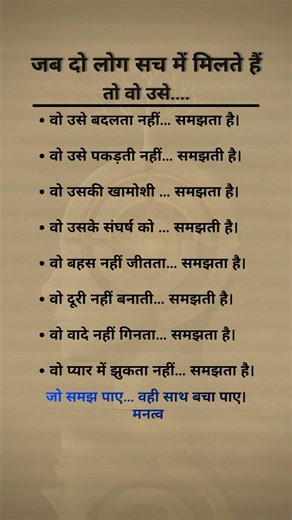 जब दो लोग सच में मिलते हैं
तो वो उसे....
• वो उसे बदलता नहीं... समझता है।
• वो उसे पकड़ती नहीं... समझती है।
• वो उसकी खामोशी ... समझता है।
• वो उसके संघर्ष को ... समझती है।
• वो बहस नहीं जीतता... समझता है।
• वो दूरी नहीं बनाती... समझती है।
• वो वादे नहीं गिनता... समझता है।
• वो प्यार में झुकता नहीं... समझता है।
जो समझ पाए... वही साथ बचा पाए।
मनत्व